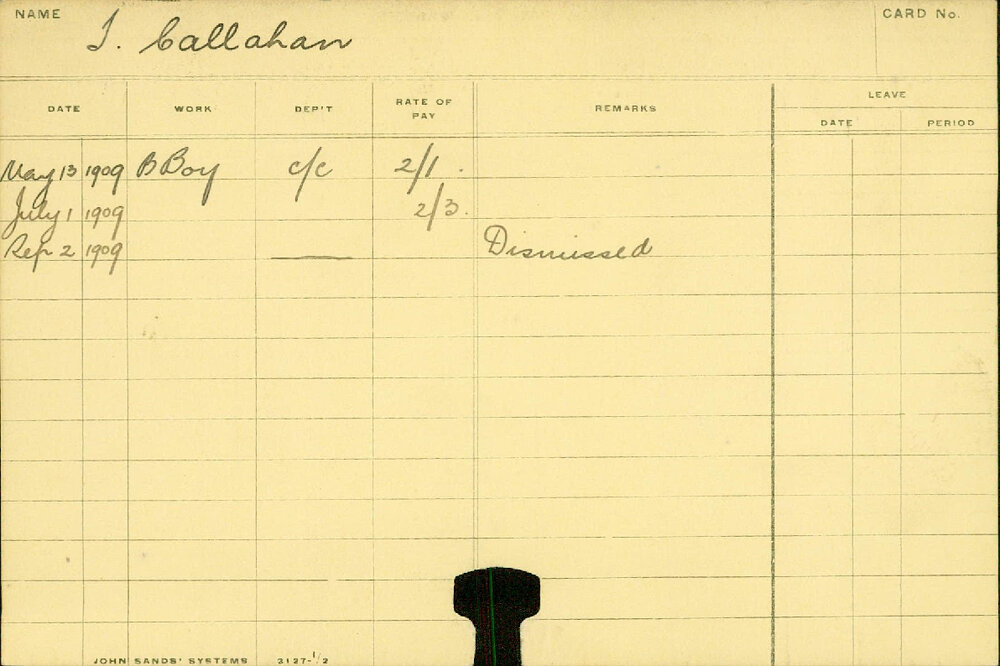 NAME J. Callahan CARD No.
DATE WORK DEP'T RATE OF PAY REMARKS LEAVE
DATE PERIOD
May 13 1909 B Boy c/c 2/1.
July 1 1909 2/3.
Sep 2 1909 Dismissed
JOHN SANDS' SYSTEMS 2127-1/2